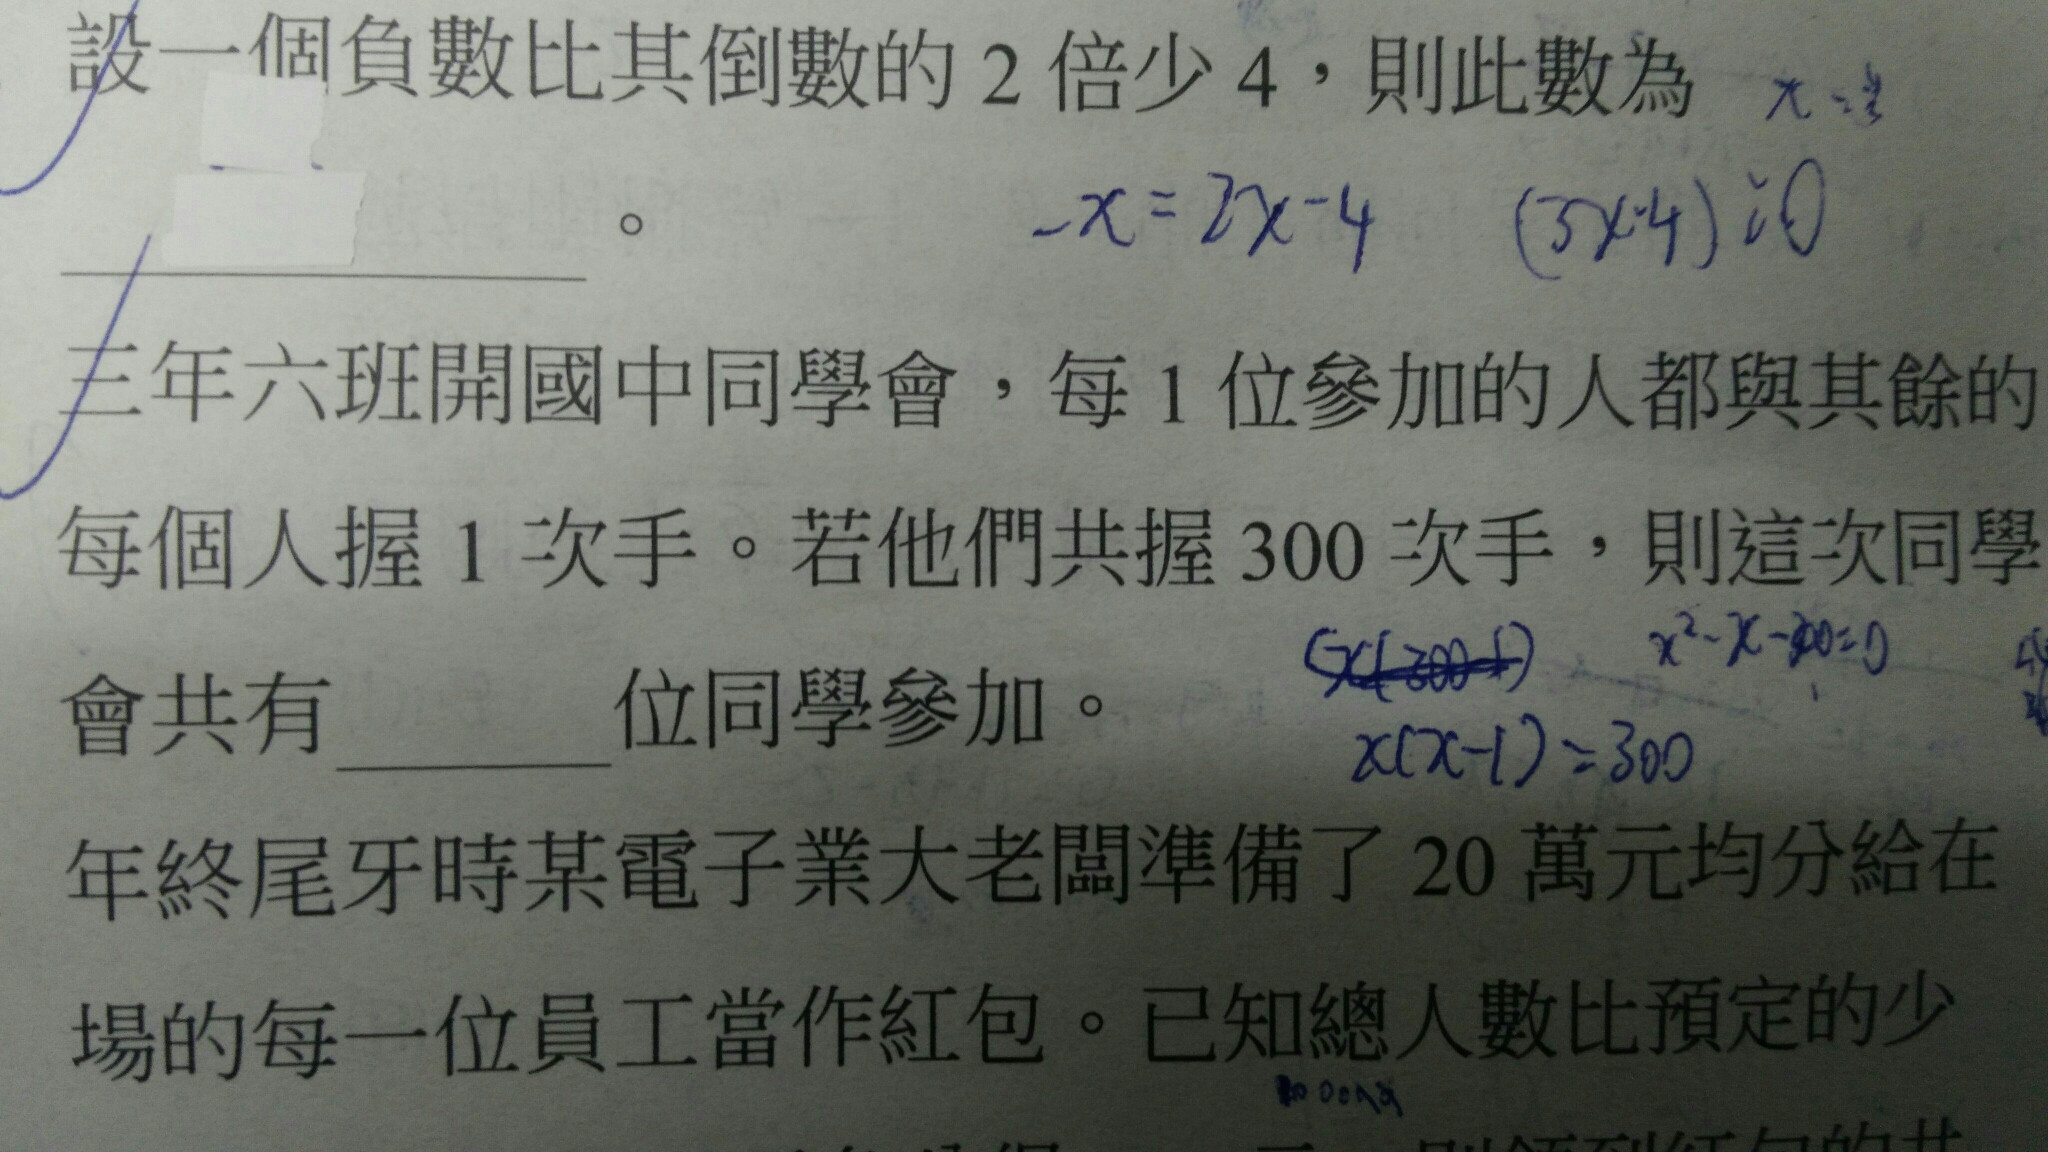 設一個負數比其倒數的 2 倍少 4，則此數為
。
-x = 2x-4
三年六班開國中同學會，每 1 位參加的人都與其餘的
每個人握 1 次手。若他們共握 300 次手，則這次同學
會共有 位同學參加。
x(x-1)=300
年終尾牙時某電子業大老闆準備了 20 萬元均分給在
場的每一位員工當作紅包。已知總人數比預定的少